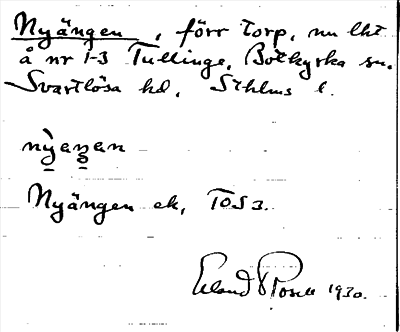 Nyängen, förr torp, nu lht
å nr 1-3 Tullinge, Botkyrka sn.
Svartlösa hd, Sthlms l.
nỳaŋan
Nyängen ek, TOS 3.
Erland Rosell 1930.